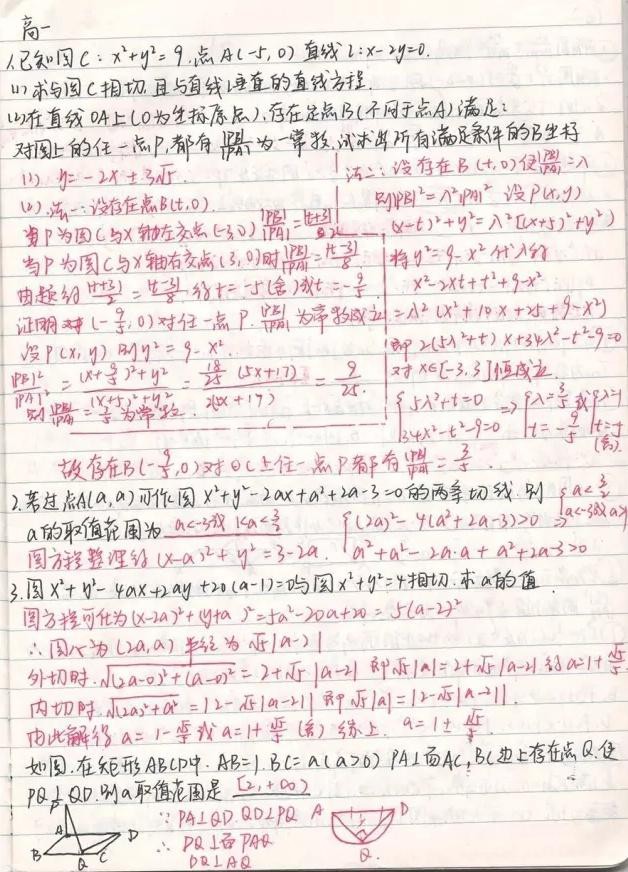 高一
1.已知圆C：x²+y²=9，点A(-5,0) 直线l：x-2y=0.
(1)求与圆C相切,且与直线l垂直的直线方程.
(2)在直线OA上(O为坐标原点),存在定点B(不同于点A)满足:
对圆上的任一点P,都有|PB|/|PA|为一常数,试求出所有满足条件的B坐标
(1) y=-2x±3√5
(2)法一:设存在点B(t,0).
当P为圆C与X轴左交点(-3,0) |PB|/|PA|=|t+3|/2
当P为圆C与X轴右交点(3,0)时|PB|/|PA|=|t-3|/8
由题得|t+3|/2=|t-3|/8,得t=-5(舍)或t=-9/5
证明对(-9/5,0)对任一点P |PB|/|PA|为常数成立
设P(x,y)则y²=9-x²
|PB|²/|PA|²=((x+9/5)²+y²)/((x+5)²+y²)=(18/25(5x+17))/(2(5x+17))=9/25.
则|PB|/|PA|=3/5为常数
法二:设存在B(t,0)使|PB|/|PA|=λ
则|PB|²=λ²|PA|² 设P(x,y)
(x-t)²+y²=λ²[(x+5)²+y²)
将y²=9-x²代入得
x²-2xt+t²+9-x²
=λ²(x²+10x+25+9-x²)
即2(5λ²+t)x+34λ²-t²-9=0
对x∈[-3,3]恒成立
{5λ²+t=0 ⇒ {λ=3/5 或{λ=1
34λ²-t²-9=0 t=-9/5 t=-5
(舍)
故存在B(-9/5,0)对⊙C上任一点P都有|PB|/|PA|=3/5.
2.若过点A(a,a)可作圆x²+y²-2ax+a²+2a-3=0的两条切线.则
a的取值范围为 a<-3或1<a<3/2 {(2a)²-4(a²+2a-3)>0 ⇒ {a<3/2
圆方程整理得(x-a)²+y²=3-2a. a²+a²-2a·a+a²+2a-3>0 a<-3或a>1
3.圆x²+y²-4ax+2ay+20(a-1)=0与圆x²+y²=4相切.求a的值.
圆方程可化为(x-2a)²+(y+a)²=5a²-20a+20=5(a-2)²
∴圆心为(2a,a) 半径为√5|a-2|
外切时.√(2a-0)²+(a-0)²=2+√5|a-2| 即√5|a|=2+√5|a-2|得a=1+√5/5
内切时.√(2a)²+a²=|2-√5|a-2|| 即√5|a|=|2-√5|a-2||.
由此解得a=1-√5/5或a=1+√5/5(舍)综上.a=1±√5/5
如图.在矩形ABCD中.AB=1,BC=a(a>0) PA⊥面AC,BC边上存在点Q.使
PQ⊥QD.则a取值范围是 [2,+∞)
P A B Q C D
∵PA⊥QD.QD⊥PQ
∴DQ⊥面PAQ
DQ⊥AQ
A D
Q.